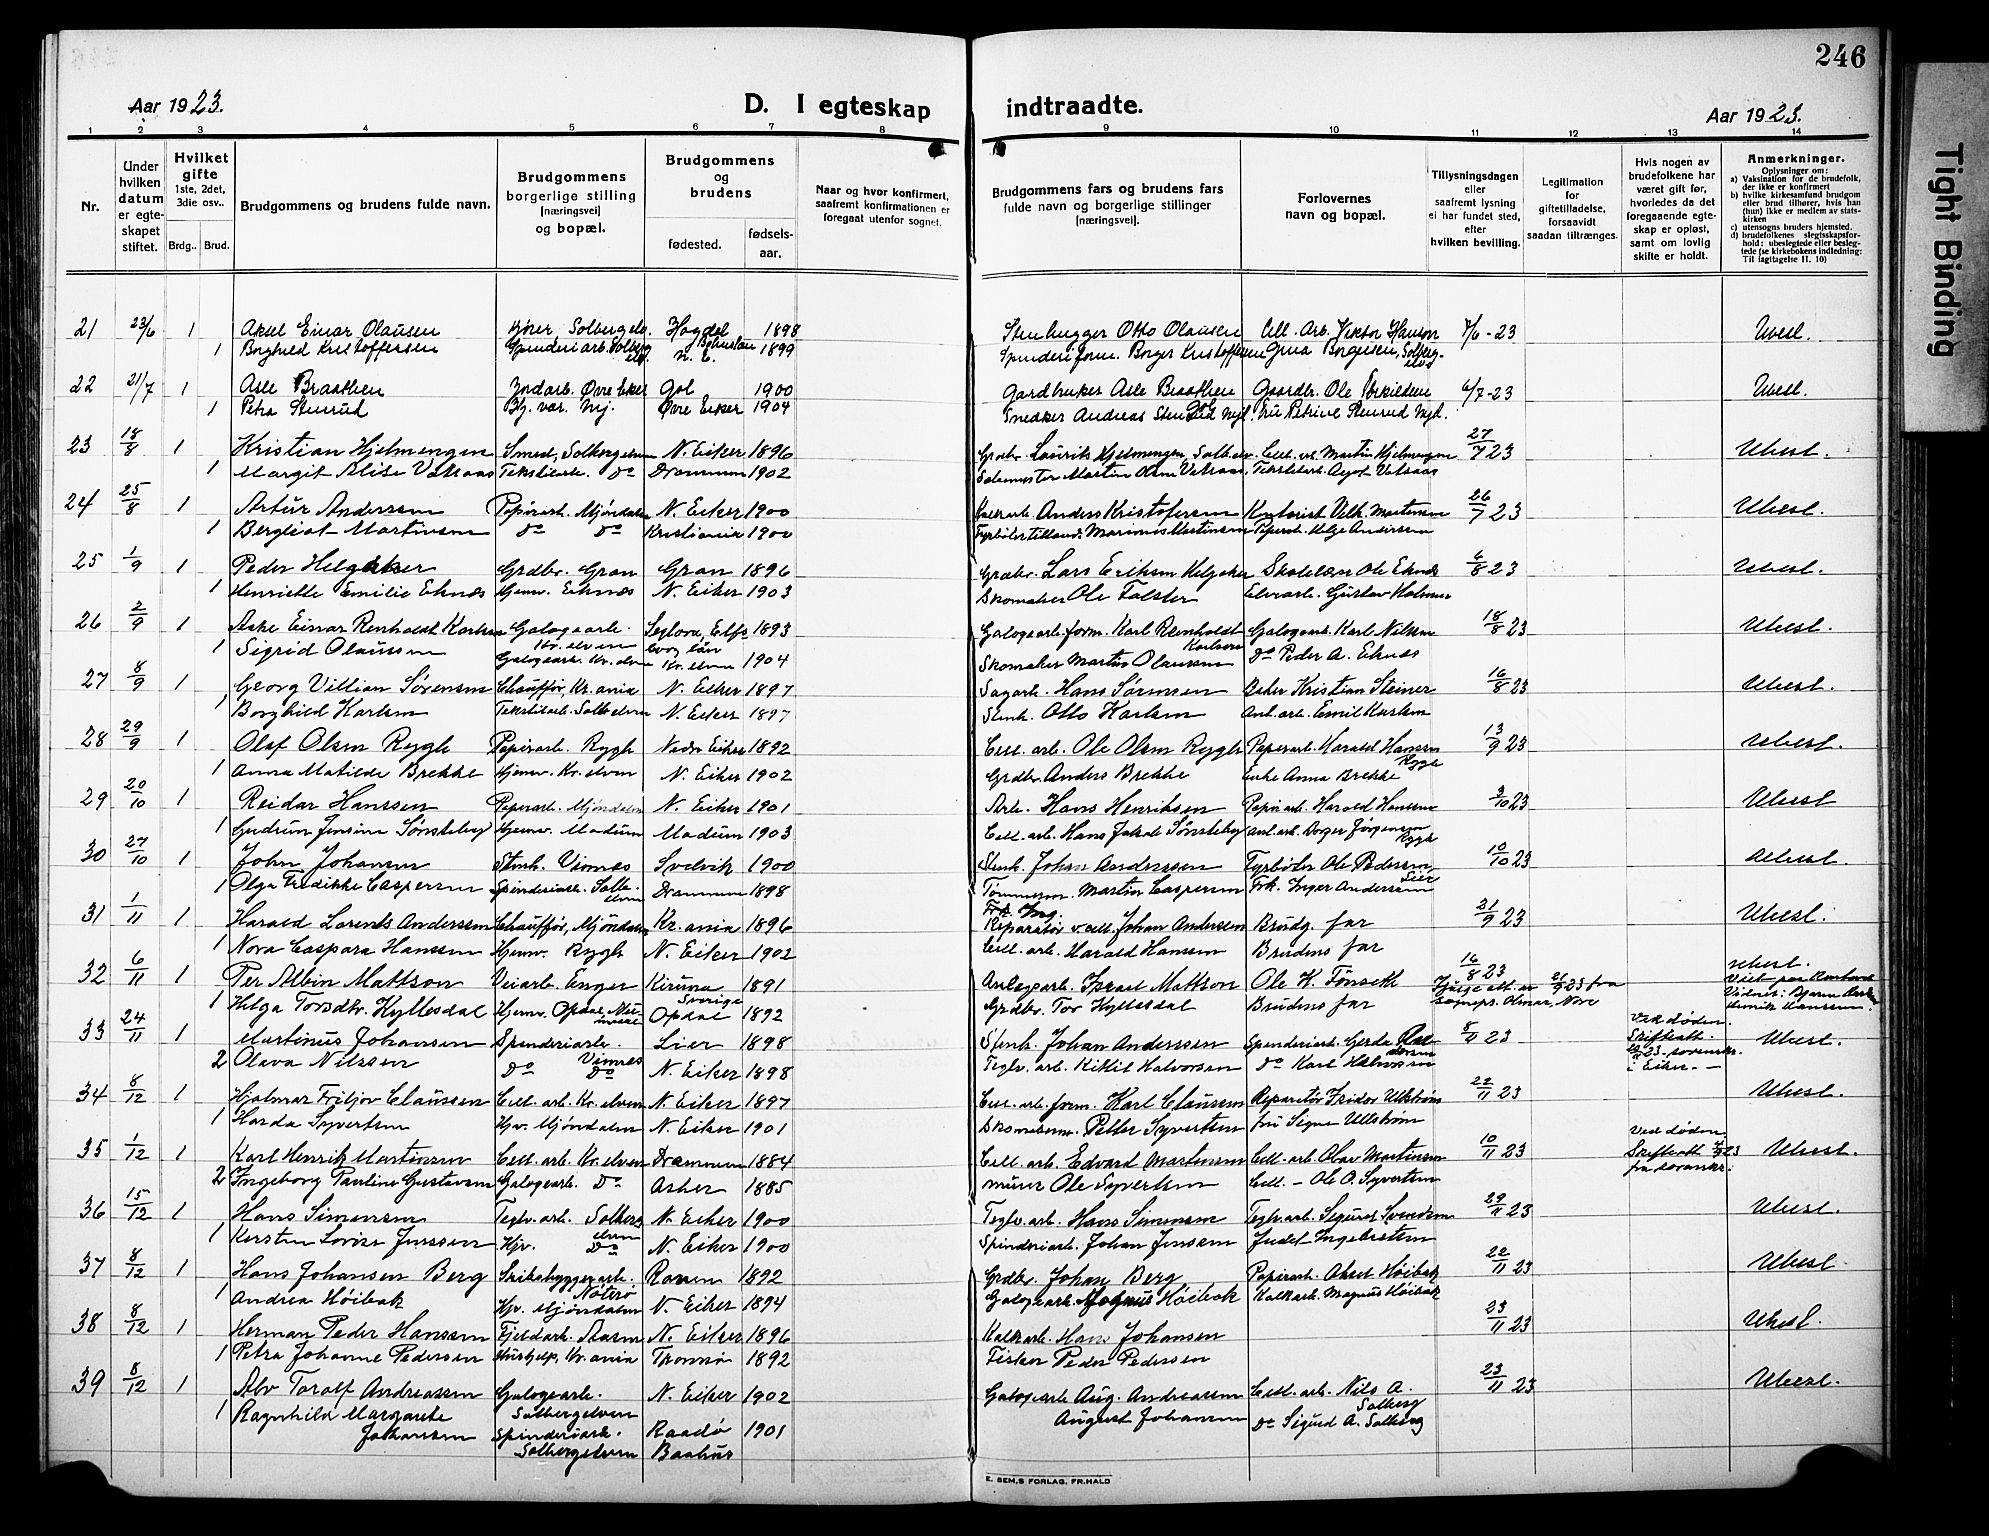 246
Aar 1923.
D. I egteskap indtraadte.
Aar 1923.
1 2 3 4 5 6 7 8 9 10 11 12 13 14
Nr.
Under hvilken datum er egteskapet stiftet.
Hvilket gifte 1ste, 2det, 3die osv..
Brdg.. Brud.
Brudgommens og brudens fulde navn.
Brudgommens borgerlige stilling [næringsvei] og bopæl.
Brudgommens og brudens
fødested.
fødselsaar.
Naar og hvor konfirmert, saafremt konfirmationen er foregaat utenfor sognet.
Brudgommens fars og brudens fars fulde navn og borgerlige stillinger [næringsvei].
Forlovernes navn og bopæl.
Tillysningsdagen eller saafremt lysning ei har fundet sted, efter hvilken bevilling.
Legitimation for giftetilladelse, forsaavidt saadan tiltrænges.
Hvis nogen av brudefolkene har været gift før, hvorledes da det foregaaende egteskap er opløst, samt om lovlig skifte er holdt.
Anmerkninger.
Oplysninger om:
a) Vaksination for de brudefolk, der ikke er konfirmert
b) hvilke kirkesamfund brudgom eller brud tilhører, hvis han (hun) ikke er medlem av statskirken
c) utensogns bruders hjemsted.
d) brudefolkenes slegtsskapsforhold: ubeslegtede eller beslegtede (se kirkebokens indledning: Til iagttagelse II. 10)
21 23/6 1 Aksel Einar Olausen Solbergelv. 1898 Stenhugger Otto Olausen Cell. Arb. Viktor Hanson 7/6-23 Ubesl.
1 Borghild Kristoffersen Spinderiarb. Solbergelv. N. E. 1899 Spinderiform. Borger Kristoffersen
22 21/7 1 Asle Braathen Jordarb. Øvre Eker Gol 1900 Gardbruker Asle Braathen Gaardbr. Ole 6/7-23 Ubesl.
1 Petra Stenrud Øvre Eiker 1904 Snedker Andreas Stenrud Mjd. Fru Petrine Stenrud Mjd.
23 18/8 1 Kristian Hjelmengen Smed, Solbergelven N. Eiker 1896 Grdbr. Laurik Hjelmengen, Solb. elv. Cell. arb. Martin Hjelmengen 27/7 23 Ubesl.
1 Margit Alise Vatsaas Tekstilarb. Do Drammen 1902 Salemester Martin Olsen Vatsaas, Tekstilarb. Vatsaas
24 25/8 1 Artur Andersen Papirarb. Mjøndalen N. Eiker 1900 Anders Kristofersen Kontorist Vilh. Martinsen 26/7 23 Ubesl.
1 Bergliot Martinsen Do Do Kristiania 1900 Marinius Martinsen Papirarb. Helge Andersen
25 1/9 1 Peder Helgaker Grdbr. Gran Gran 1896 Grdbr. Lars Eriksen Helgaker Skolelærer Ole Eknæs 6/8 23 Ubesl.
1 Henriette Emilie Eknæs Hjemv. Eknæs N. Eiker 1903 Skomaker Ole Falster Elvearb. Gustav Holmen
26 2/9 1 Aske Einar Renholdt Karlsen Galogearb. Kr. elven 1893 Galogearb. form. Karl Renholdt Karlsen Galogearb. Karl Nilsen 18/8 23 Ubesl.
1 Sigrid Olaussen Galogearb. Kr. elven Kr. elven 1904 Skomaker Martin Olaussen Do Peder A. Eknæs
27 8/9 1 Georg Villian Sørensen Chauffør, Kr.ania N. Eiker 1897 Sagarb. Hans Sørensen Kristian Steiner 16/8 23 Ubesl.
1 Borghild Karlsen Tekstilarb. Solb. elven N. Eiker 1897 Stenh. Otto Karlsen Anl. arb. Emil Karlsen
28 29/9 1 Olaf Olsen Rygh Papirarb. Rygh Nedre Eiker 1892 Cell. arb. Ole Olsen Rygh Papirarb. Harald Hansen Rygh 13/9 23 Ubesl.
1 Anna Matilde Brekke Hjemv. Kr. elven N. Eiker 1902 Grdbr. Anders Brekke Enke Anna Brekke
29 20/10 1 Reidar Hanssen Papirarb. Mjøndalen N. Eiker 1901 Arb. Hans Henriksen Papirarb. Harald Hansen 3/10 23 Ubesl
1 Gudrun Jensine Sønsteby Hjemv. Modum Modum 1903 Cell. arb. Hans Jakob Sønsteby Anl. arb. Borger Jørgensen Rygh
30 27/10 1 John Johansen Stenh. Vimnes Svelvik 1900 Stenh. Johan Anderssen Fyrbøter Ole Pedersen, Lier 10/10 23 Ubesl.
1 Olga Fredikke Caspersen Spinderiarb. Solb. elven Drammen 1898 Tømmerm. Martin Caspersen Frk. Inger Andersen
31 1/11 1 Harald Lorents Anderssen Chauffør, Mjøndalen Kr. ania 1896 Reparatør v. cell. Johan Andersen Brudg. far 21/9 23 Ubesl.
1 Nora Caspara Hanssen Hjemv. Rygh N. Eiker 1902 Cell. arb. Harald Hanssen Brudens far
32 6/11 1 Per Albin Mattson Veiarb. Enger Kiruna Sverige 1891 Anlegsarb. Israel Mattson Ole K. Tønseth 16/8 23 Ubesl.
1 Helga Torsdtr. Kyllesdal Hjemv. Opdal, Numedal Opdal 1892 Grdbr. Tor Kyllesdal Brudens far sognepr. Nore
33 24/11 1 Martinus Johansen Spinderiarb. Vimnes Lier 1898 Stenh. Johan Anderssen Spinderiarb. 8/11 23 Ved døden. Skifteatt. sorenskr. i Eiker Ubesl.
2 Olava Nilssen Do Do N. Eiker 1898 Teglv. arb. Kittil Halvorsen Do Karl Halvorsen
34 8/12 1 Hjalmar Fritjov Claussen Cell. arb. Kr. elven N. Eiker 1897 Cell. arb. form. Karl Claussen Reparatør Fridor Ullstrøm 22/11 23 Ubesl.
1 Harda Syvertsen Hjv. Mjøndalen N. Eiker 1901 Skomaserm. Petter Syvertsen fru Signe Ullstrøm
35 1/12 1 Karl Henrik Martinsen Cell. arb. Kr. elven Drammen 1884 Cell. arb. Edvard Martinsen Cell. arb. Olav Martinsen 10/11 23 Ved døden Skifteatt. fra sorenskr. Ubesl.
2 Ingeborg Pauline Gustavsen Galogearb. Do Asker 1885 Murer Ole Syvertsen Cell. – Ole O. Syvertsen
36 15/12 1 Hans Simensen Teglv. arb. Solberg elven N. Eiker 1900 Teglv. arb. Hans Simensen Teglv. arb. Sigurd Svendsen 29/11 23 Ubesl.
1 Kirsten Lovise Jenssen Hjv. Do N. Eiker 1900 Spinderiarb. Johan Jensen Judit Ingebretsen
37 8/12 1 Hans Johansen Berg Skibsbyggerarb. Nøterø Ramnes 1892 Grdbr. Johan Berg Papirarb. Aksel Høibak 22/11 23 Ubesl.
1 Andrea Høibak Hjv. Mjøndalen N. Eiker 1894 Galogearb. Magnus Høibak Kalkarb. Magnus Høibak
38 8/12 1 Herman Peder Hanssen Fjeldarb. Aasen N. Eiker 1896 Kalkarb. Hans Johansen 23/11 23 Ubesl.
1 Petra Johanne Pedersen Hushjelp, Kr. ania Tromsø 1892 Fisker Peder Pedersen
39 8/12 1 Alv Toralf Andreassen Galogearb. Solbergelven N. Eiker 1902 Galogearb. Aug. Andreassen Cell. arb. Nils A. Solberg 23/11 23 Ubesl.
1 Ragnhild Margarete Johanssen Spinderiarb. Solbergelven Raadø Baahus 1901 August Johansen Do Sigurd A. Solberg
E. SEM,S FORLAG, FR.HALD
Tight Binding